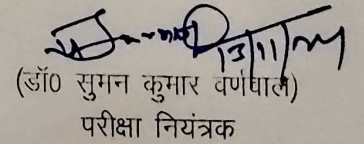 13/11/24
(डॉ0 सुमन कुमार वर्णवाल)
परीक्षा नियंत्रक